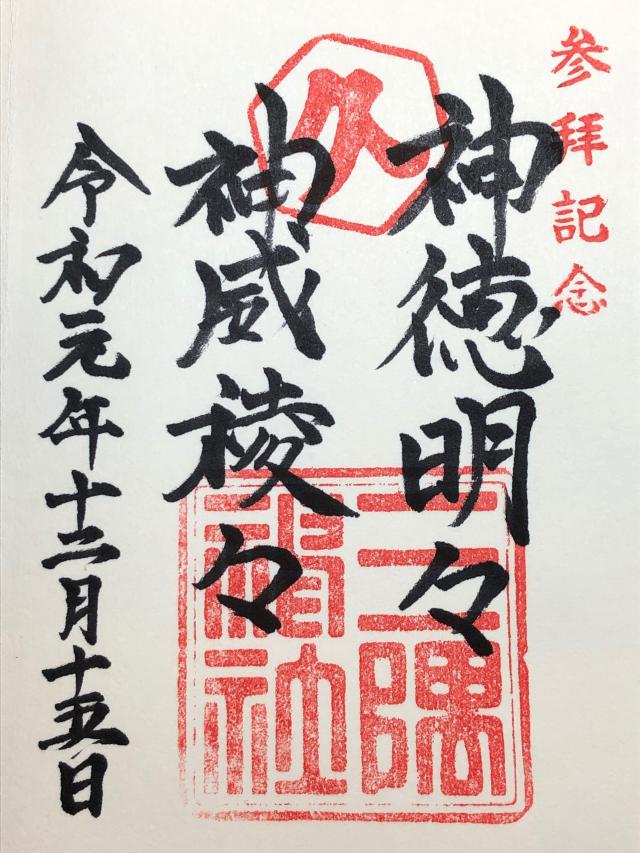 参拝記念
神徳明々
神威稜々
令和元年十二月十五日
久
三囲
神社